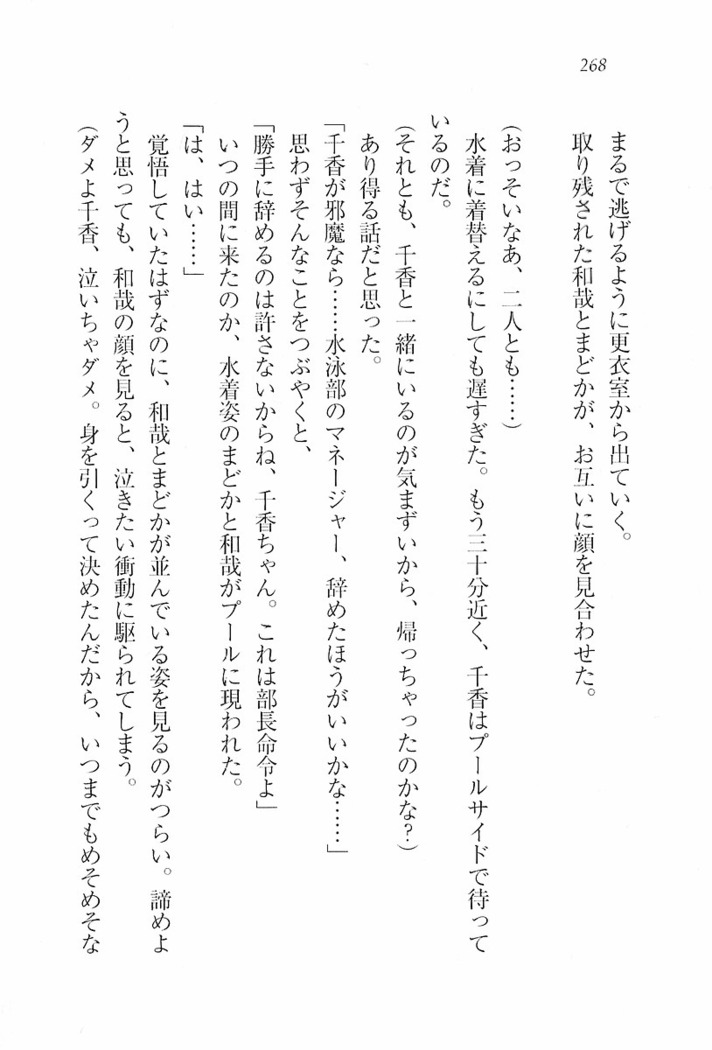 268
まるで逃げるように更衣室から出ていく。
取り残された和哉とまどかが、お互いに顔を見合わせた。
(おっそいなあ、二人とも……)
水着に着替えるにしても遅すぎた。もう三十分近く、千香はプールサイドで待って
いるのだ。
(それとも、千香と一緒にいるのが気まずいから、帰っちゃったのかな?)
あり得る話だと思った。
「千香が邪魔なら……水泳部のマネージャー、辞めたほうがいいかな……」
思わずそんなことをつぶやくと、
「勝手に辞めるのは許さないからね、千香ちゃん。これは部長命令よ」
いつの間に来たのか、水着姿のまどかと和哉がプールに現われた。
「は、はい……」
覚悟していたはずなのに、和哉とまどかが並んでいる姿を見るのがつらい。諦めよ
うと思っても、和哉の顔を見ると、泣きたい衝動に駆られてしまう。
(ダメよ千香、泣いちゃダメ。身を引くって決めたんだから、いつまでもめそめそな